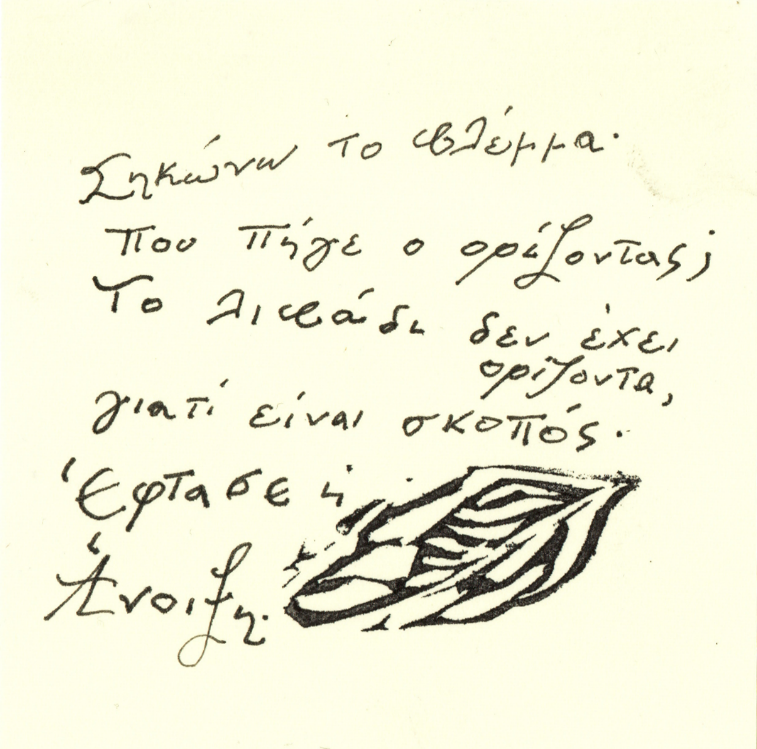 Σηκώνω το βλέμμα.
Που πήγε ο ορίζοντας;
Το λιβάδι δεν έχει
ορίζοντα,
γιατί είναι σκοπός.
Έφτασε ή
Άνοιξη.